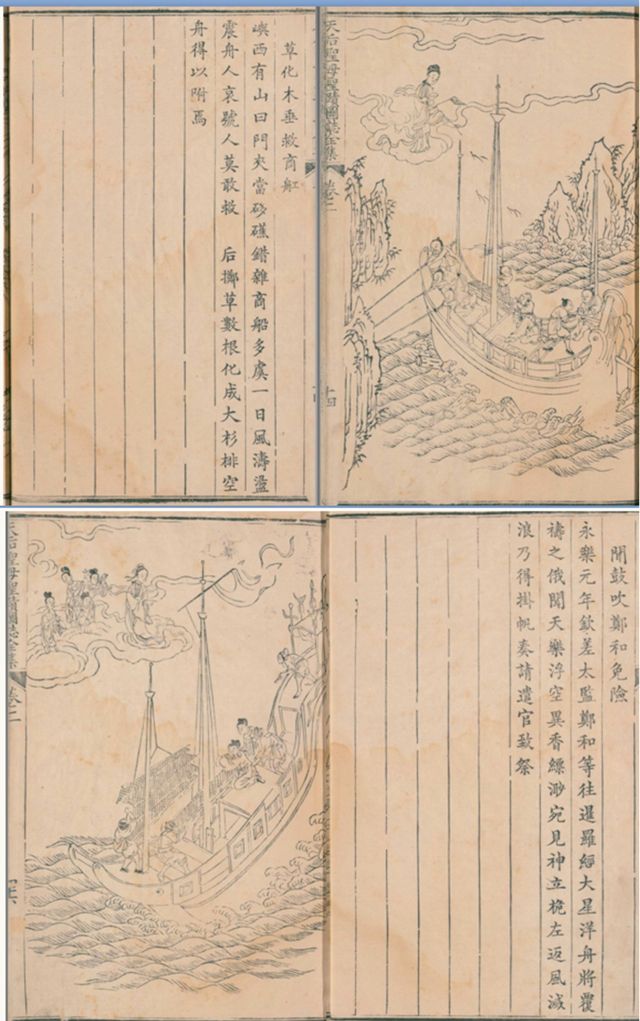 天后聖母聖蹟圖誌全集
卷二
十四
草化木垂救商舡
嶼西有山曰門夾當砂礁錯雜商船多虞一日風濤盪
震舟人哀號人莫敢救　后擲草數根化成大杉排空
舟得以附焉
聞鼓吹鄭和免險
永樂元年欽差太監鄭和等往暹羅經大星洋舟將覆
禱之俄聞天樂浮空異香縹渺宛見神立桅左返風滅
浪乃得掛帆奏請遣官致祭
天后聖母聖蹟圖誌全集
卷二
十六